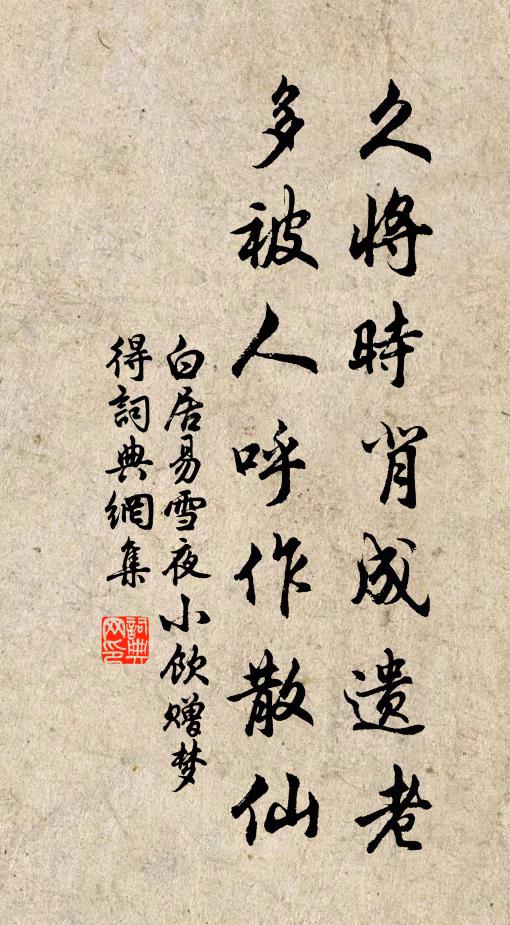 久將時背成遺老
多被人呼作散仙
白居易雪夜小飲赠梦
得詞典網集
詞典
网印